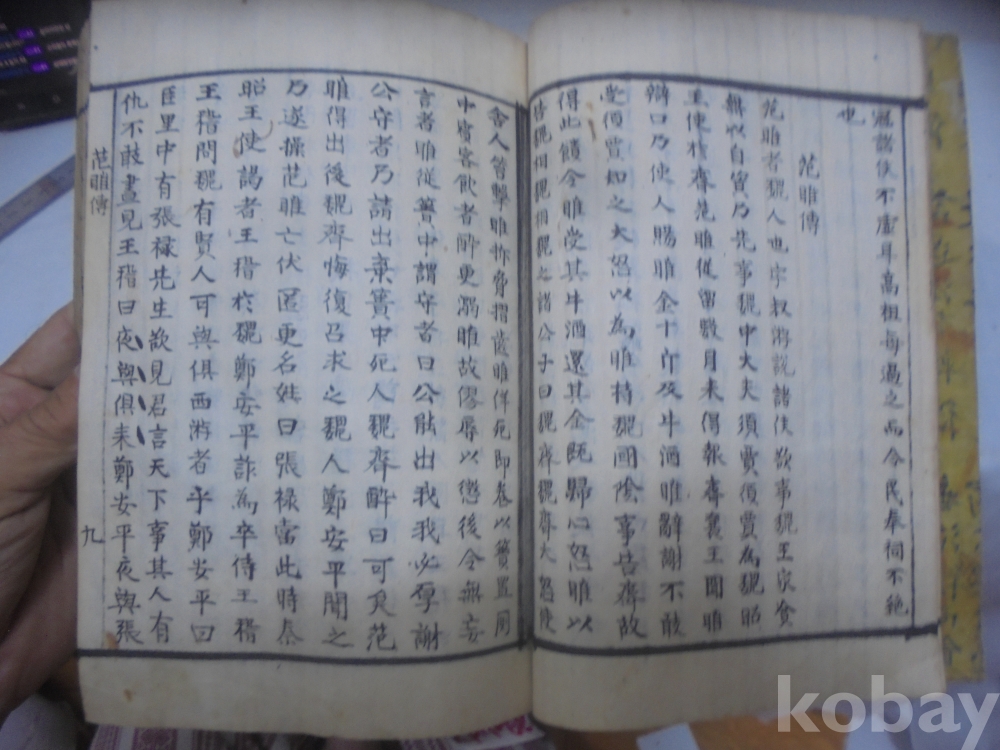 冠諸侯不虛耳高祖每過之而令民奉祠不絶
也
范睢傳
范睢者魏人也字叔游說諸侯欲事魏王家貧
無以自資乃先事魏中大夫須賈須賈為魏昭
王使於齊范睢從留數月未得報齊襄王聞睢
辯口乃使人賜睢金十斤及牛酒睢辭謝不敢
受須賈知之大怒以為睢持魏國陰事告齊故
得此饋令睢受其牛酒還其金旣歸心怒睢以
告魏相魏相魏之諸公子曰魏齊魏齊大怒使
舍人笞擊睢折脅摺齒睢佯死即卷以簀置厠
中賓客飮者醉更溺睢故僇辱以懲後令無妄
言者睢從簀中謂守者曰公能出我我必厚謝
公守者乃請出棄簀中死人魏齊醉曰可矣范
睢得出後魏齊悔復召求之魏人鄭安平聞之
乃遂操范睢亡伏匿更名姓曰張祿當此時秦
昭王使謁者王稽於魏鄭安平詐為卒侍王稽
王稽問魏有賢人可與俱西游者乎鄭安平曰
臣里中有張祿先生欲見君言天下事其人有
仇不敢晝見王稽曰夜與俱來鄭安平夜與張
范睢傳
九
kobay